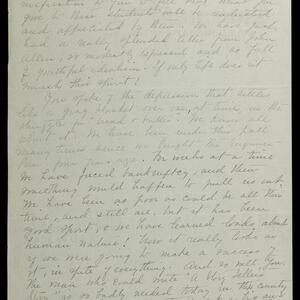 inspiration to you & feel that what you
give to these students will be understood
and appreciated by them. You have just
had a really splendid letter from John
Allen, so modestly expressed and so full
of youthful idealism. If only life doesn't
crush this spirit!
You spoke of the depression that settles
like a gray blanket over one, at times, in the
struggle for "bread & butter." We know all
about it. We have been under this pall
many times since we bought the
four years ago. For weeks at a time
we have faced bankruptcy, and then
something would happen to pull us out.
We have been as poor as could be all this
time, and still are, but it has been
good sport, & we have learned loads about
human nature! Now it really looks as
if we were going to make a success of
it, in spite of everything. And so will you.
The man who could write
are so badly needed today in this country